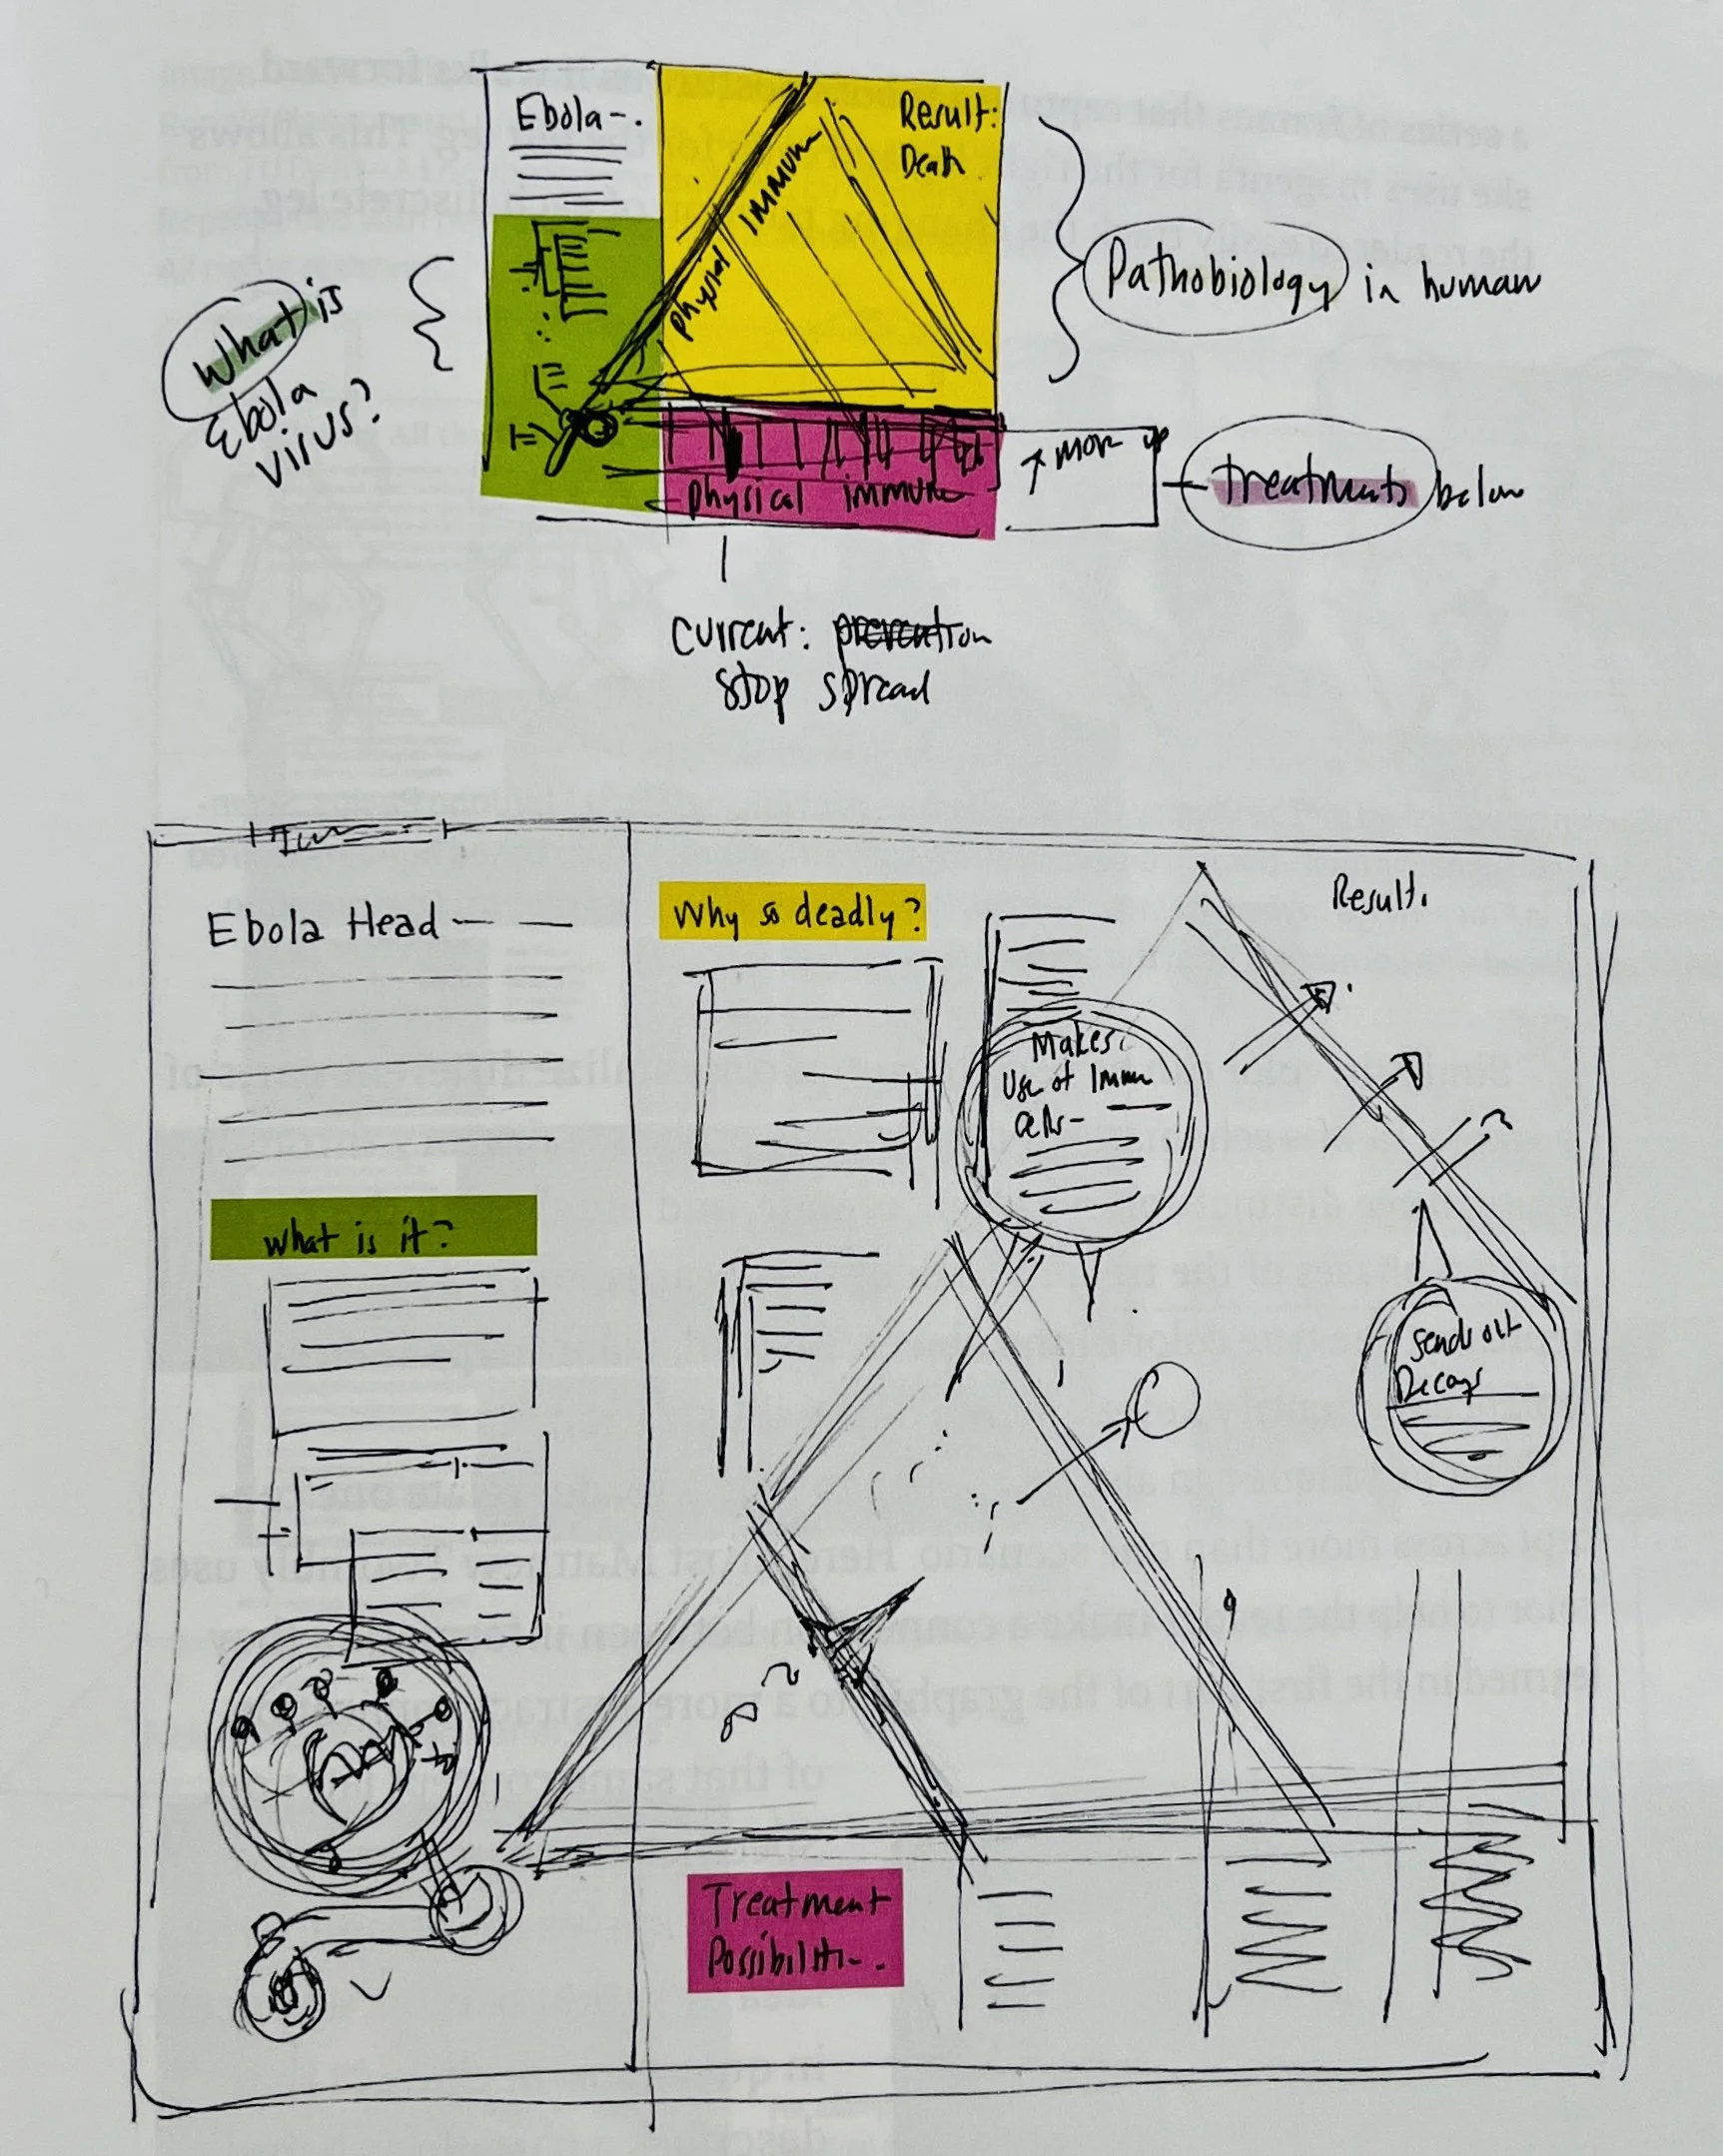 Ebola-.
Result:
Death
physical immune
What is
Ebola
virus?
Pathobiology in human
physical immune
treatments below
current: prevention
stop spread
Ebola Head — —
Why so deadly?
Result.
Makes
Use of Immu
cells-
what is it?
Sends out
Decoys
Treatment
Possibiliti-.